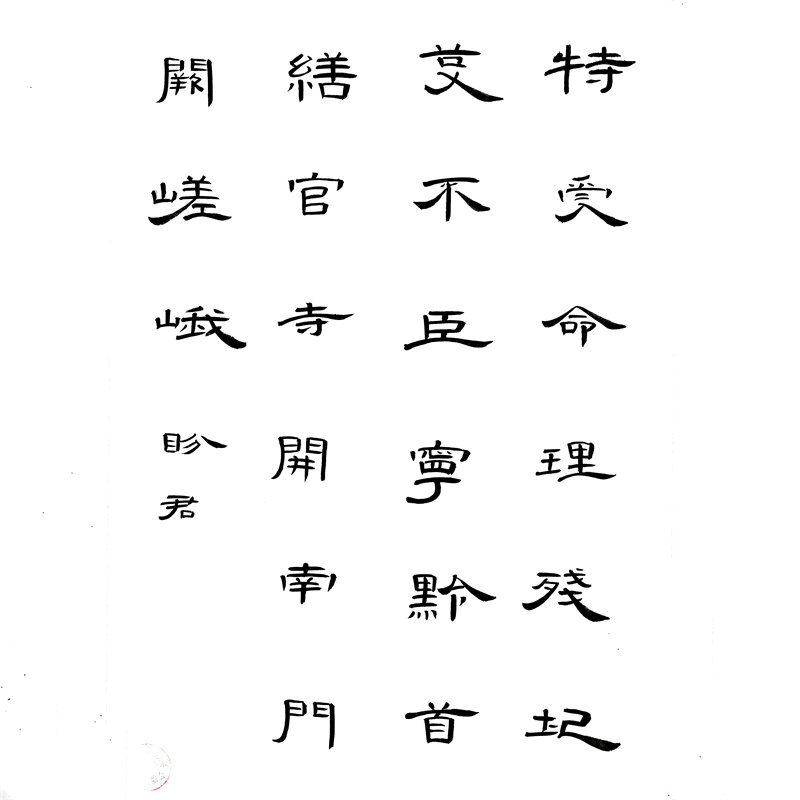 特受命理殘圮
芟不臣寧黔首
繕官寺開南門
闕嵯峨
盼君